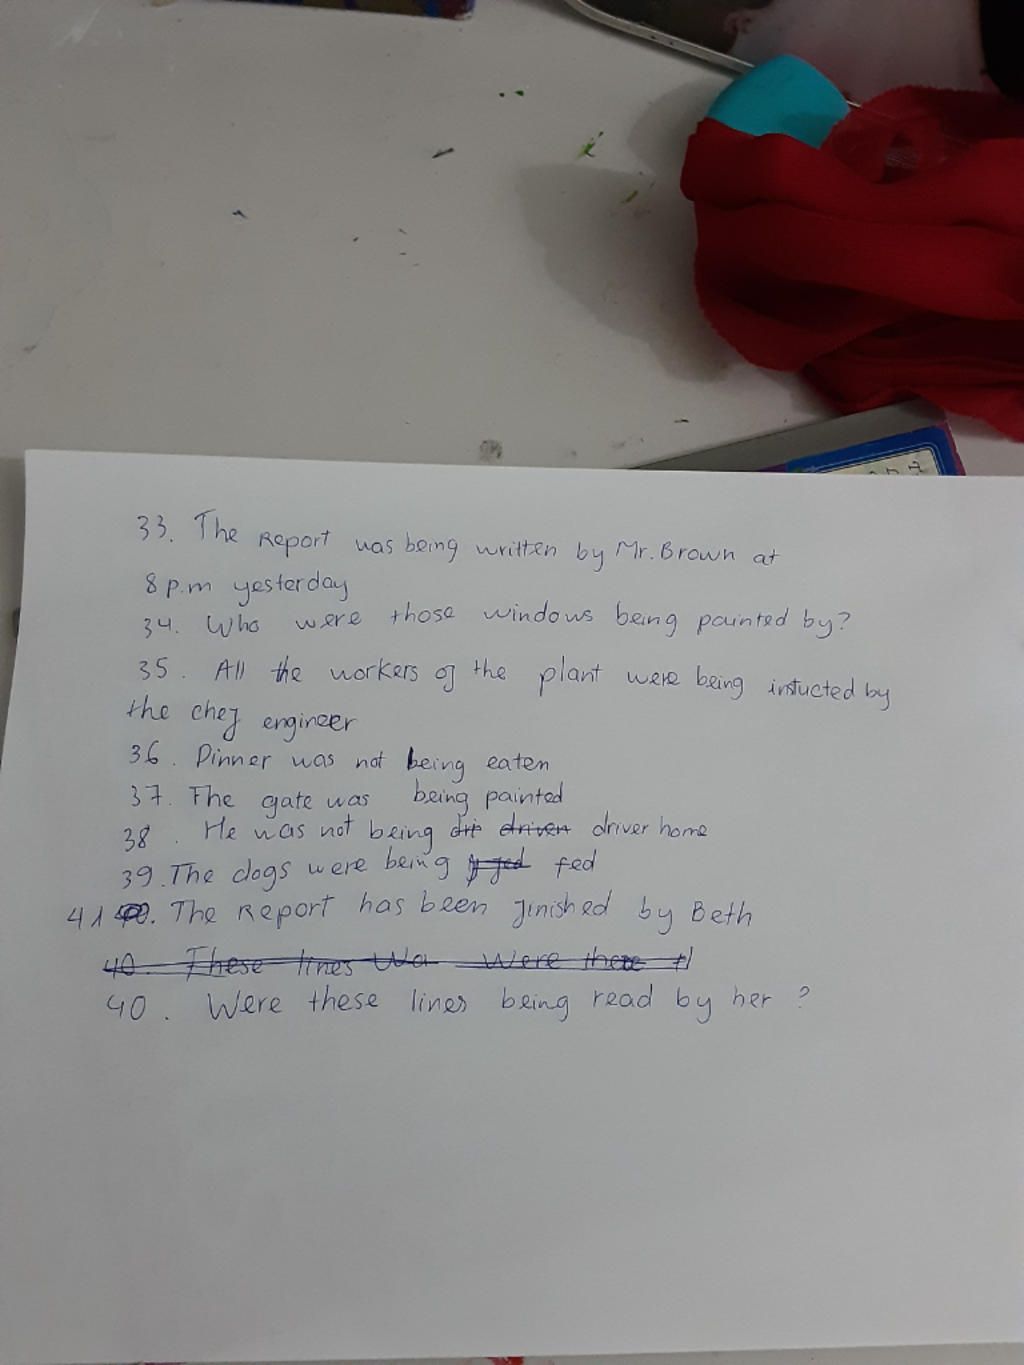 33. The Report was being written by Mr. Brown at
8 p.m yesterday
34. Who were those windows being painted by?
35. All the workers of the plant were being intucted by
the chef engineer
36. Dinner was not being eaten
37. The gate was being painted
38. He was not being dri driven driver home
39. The dogs were being fed
41. The Report has been finished by Beth
40. These lines Wa Were there
40. Were these lines being read by her ?